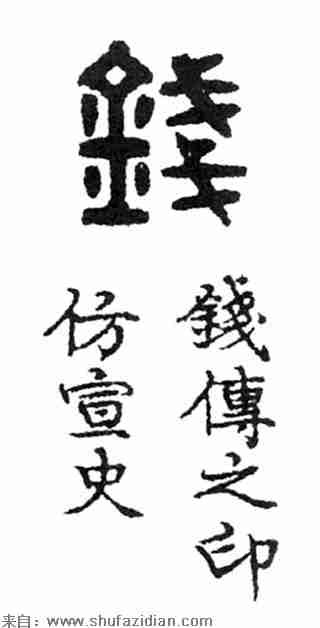 錢
錢傳之印
仿宣史
来自：www.shufazidian.com